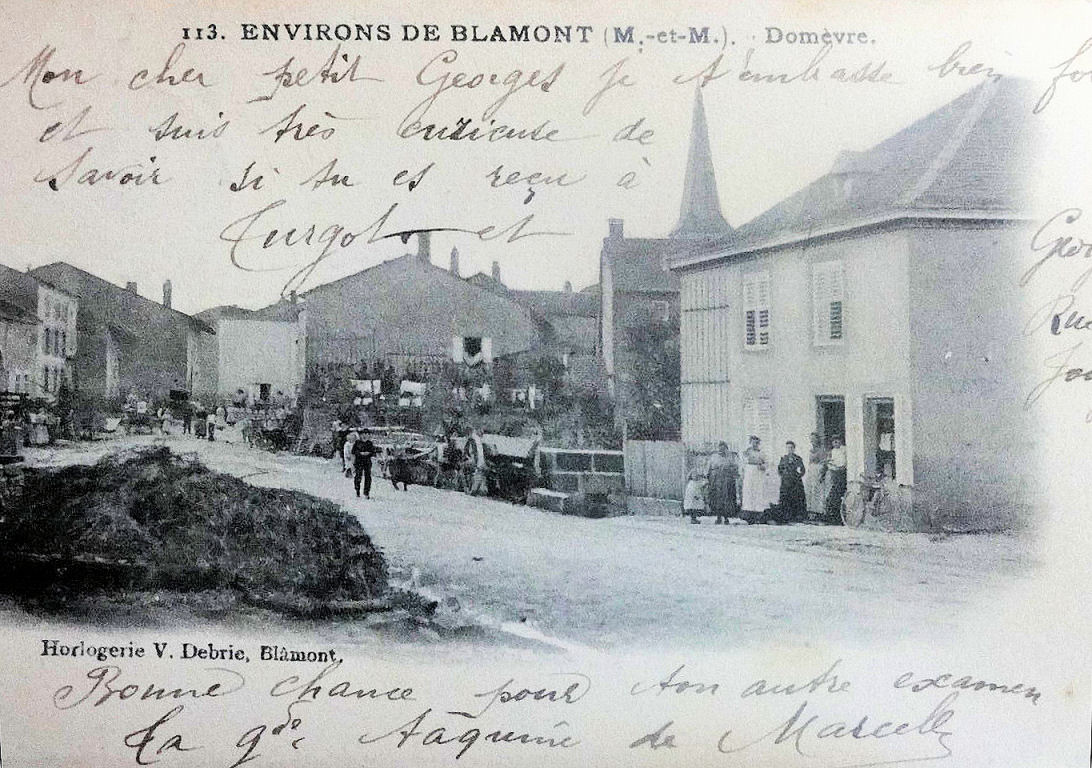 113. ENVIRONS DE BLAMONT (M.-et-M.). - Domèvre.
Mon cher petit Georges je t'embrasse bien
et suis très curieuse de
savoir si tu es reçu à
Turgot et
Horlogerie V. Debrie, Blâmont.
Bonne chance pour ton autre examen
Ta gde Taquine de Marcelle